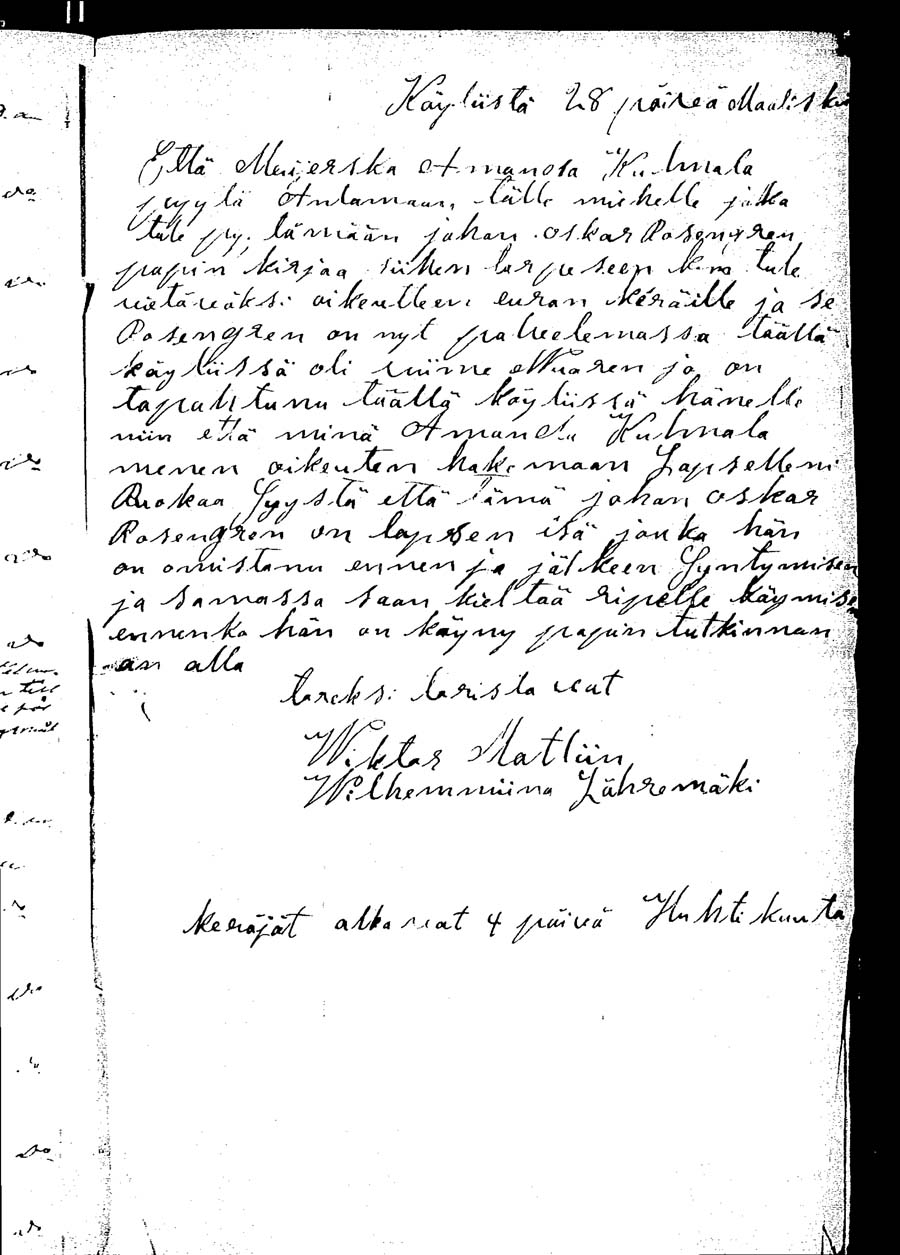 Käyliistä 28 päiveä Maalisku
Että Meijerska Amanda Kulmala
pyylä Antamaan, tälle miehelle jokka
tule py, tämään johan oskar Rosengren
papin kirjaa siihen tarpeseen k:n tule
vietäväksi oikeutteen euran käräille ja se
Rosengren on nyt palveelemassa täällä
käyliissä oli viime Wuoren jo on
tapahtunu täällä käyliissä hänelle
niin että minä Amanda Kulmala
menen oikeuten hakemaan Lapselleni
Ruokaa Syystä että tämä johan oskar
Rosengren on lapsen isä jonka hän
on omistanu ennen ja jälkeen Syntymisen
ja samassa saan kieltää ripelle käymise
ennenko hän on käyny papiin tutkinnan
an alla
toreksi toristavat
Wiktor Matliin
Wilhemmiina Lähremäki
keräjät alkavat 4 päivä Huhti kuuta